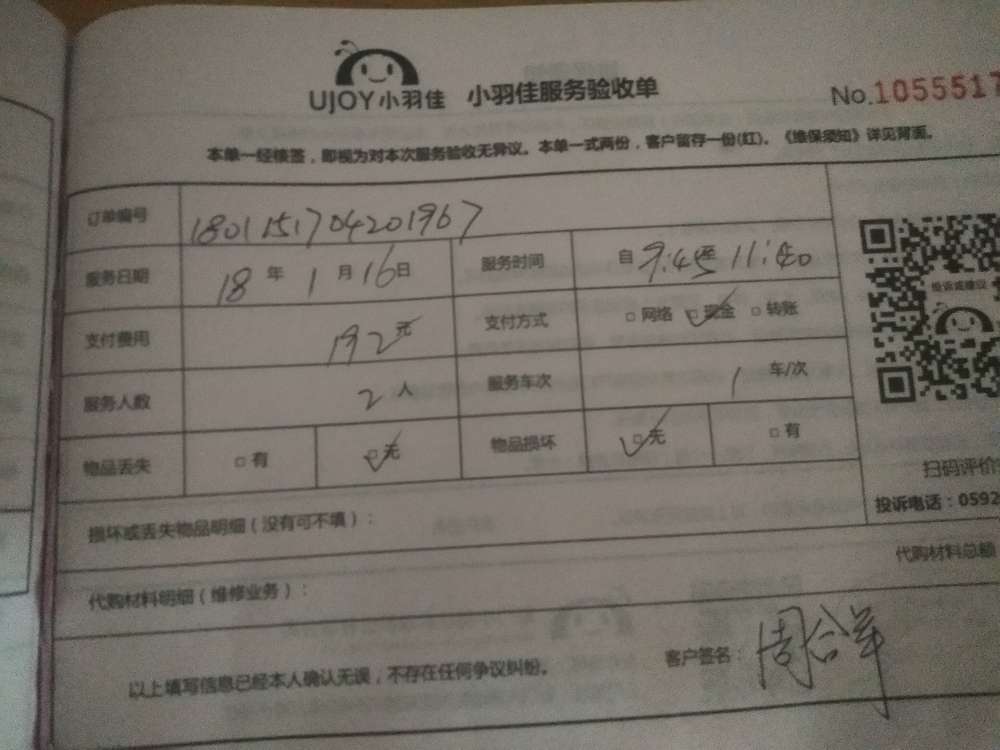 UJOY小羽佳 小羽佳服务验收单 No.1055517
本单一经接签，即视为对本次服务验收无异议。本单一式两份，客户留存一份(红)。《维保须知》详见背面。
订单编号 1801151704201967
服务日期 18年1月16日 服务时间 自9:45至11:40
支付费用 192元 支付方式 □网络 ☑现金 □转账
服务人数 2人 服务车次 1车/次
物品丢失 □有 ☑无 物品损坏 ☑无 □有
投诉或建议
扫码评价
投诉电话：0592
损坏或丢失物品明细（没有可不填）：
代购材料明细（维修业务）： 代购材料总额
以上填写信息已经本人确认无误，不存在任何争议纠纷。 客户签名：周合军